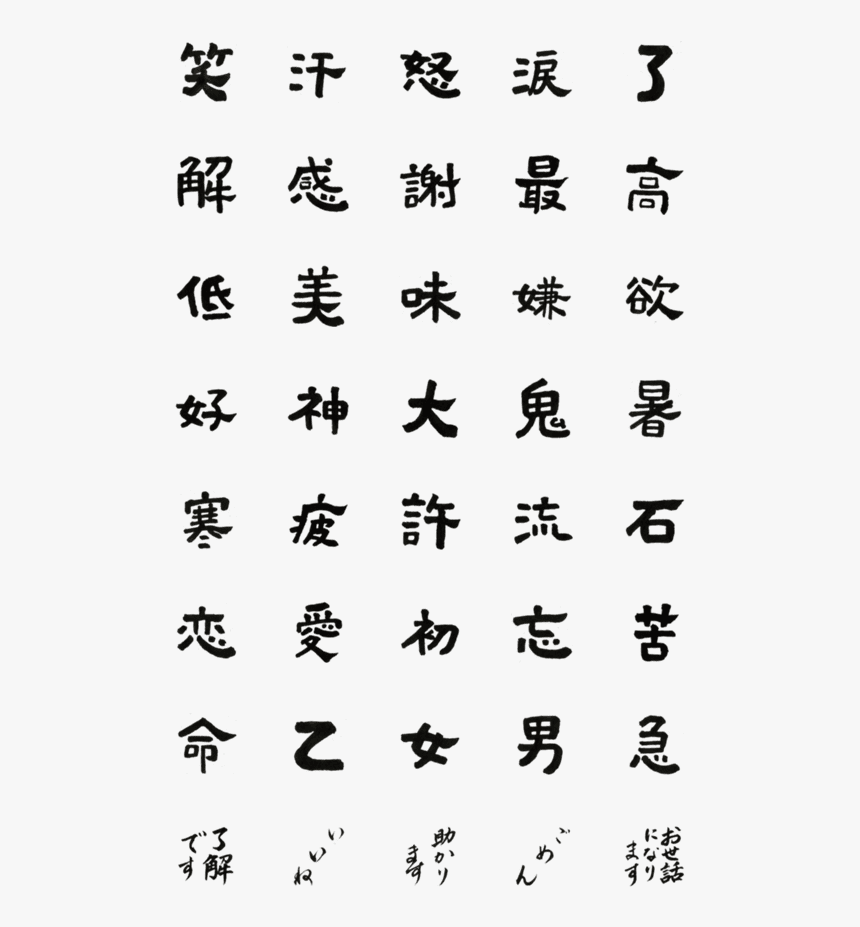 笑 汗 怒 涙 了
解 感 謝 最 高
低 美 味 嫌 欲
好 神 大 鬼 暑
寒 疲 許 流 石
恋 愛 初 忘 苦
命 乙 女 男 急
了解
です
いいね
助かり
ます
ごめん
お世話
になり
ます